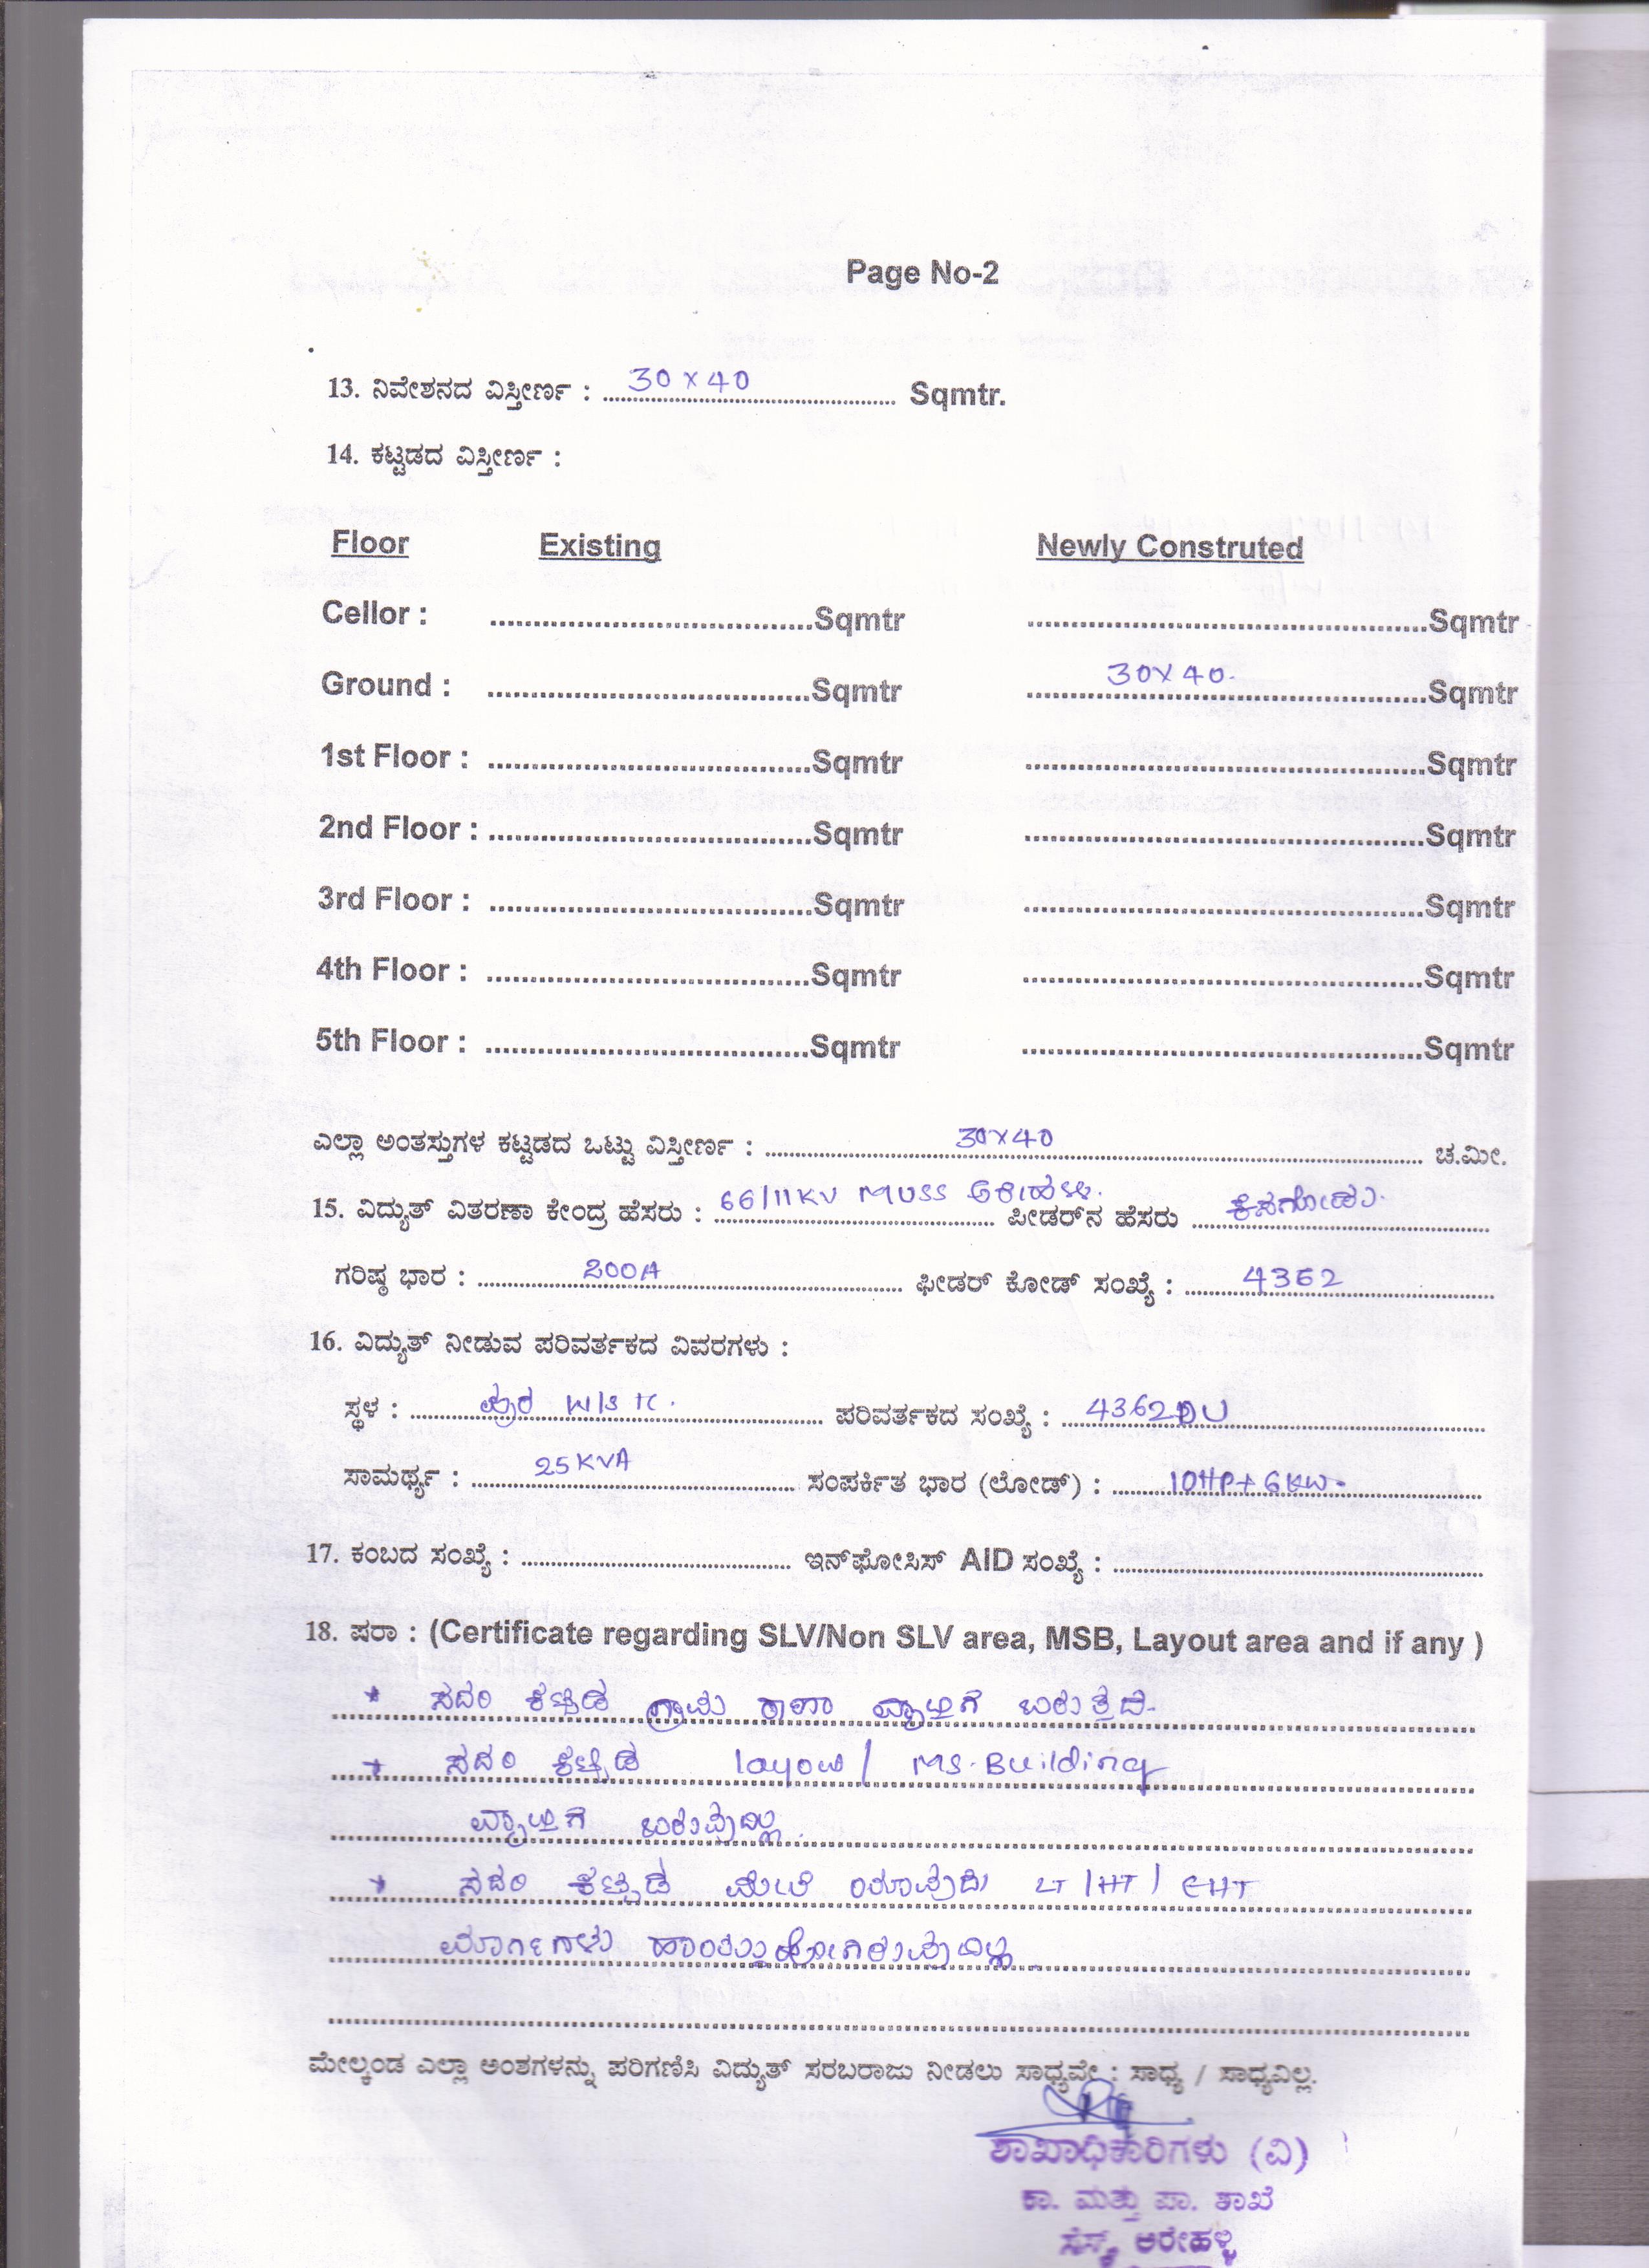 Page No-2
13. ನಿವೇಶನದ ವಿಸ್ತೀರ್ಣ : 30 x 40 Sqmtr.
14. ಕಟ್ಟಡದ ವಿಸ್ತೀರ್ಣ :
Floor Existing Newly Construted
Cellor : Sqmtr Sqmtr
Ground : Sqmtr 30X40. Sqmtr
1st Floor : Sqmtr Sqmtr
2nd Floor : Sqmtr Sqmtr
3rd Floor : Sqmtr Sqmtr
4th Floor : Sqmtr Sqmtr
5th Floor : Sqmtr Sqmtr
ಎಲ್ಲಾ ಅಂತಸ್ತುಗಳ ಕಟ್ಟಡದ ಒಟ್ಟು ವಿಸ್ತೀರ್ಣ : 30x40 ಚ.ಮೀ.
15. ವಿದ್ಯುತ್ ವಿತರಣಾ ಕೇಂದ್ರ ಹೆಸರು : 66/11KV MUSS ಪೀಡರ್‌ನ ಹೆಸರು ಕೆಸಗೋಡು.
ಗರಿಷ್ಠ ಭಾರ : 200A ಫೀಡರ್ ಕೋಡ್ ಸಂಖ್ಯೆ : 4362
16. ವಿದ್ಯುತ್ ನೀಡುವ ಪರಿವರ್ತಕದ ವಿವರಗಳು :
ಸ್ಥಳ : ಪುರ W/S TC. ಪರಿವರ್ತಕದ ಸಂಖ್ಯೆ : 4362DU
ಸಾಮರ್ಥ್ಯ : 25KVA ಸಂಪರ್ಕಿತ ಭಾರ (ಲೋಡ್) : 10HP+6KW.
17. ಕಂಬದ ಸಂಖ್ಯೆ : ಇನ್‌ಫೋಸಿಸ್ AID ಸಂಖ್ಯೆ :
18. ಷರಾ : (Certificate regarding SLV/Non SLV area, MSB, Layout area and if any )
* ಸದರಿ ಕಟ್ಟಡ ಗ್ರಾಮ ಠಾಣಾ ವ್ಯಾಪ್ತಿಗೆ ಬರುತ್ತದೆ.
* ಸದರಿ ಕಟ್ಟಡ layout / MS. Building
ವ್ಯಾಪ್ತಿಗೆ ಬರುವುದಿಲ್ಲ.
* ಸದರಿ ಕಟ್ಟಡ ಮೇಲೆ ಯಾವುದು LT / HT / EHT
ಮಾರ್ಗಗಳು ಹಾಯ್ದುಹೋಗಿರುವುದಿಲ್ಲ.
ಮೇಲ್ಕಂಡ ಎಲ್ಲಾ ಅಂಶಗಳನ್ನು ಪರಿಗಣಿಸಿ ವಿದ್ಯುತ್ ಸರಬರಾಜು ನೀಡಲು ಸಾಧ್ಯವೇ : ಸಾಧ್ಯ / ಸಾಧ್ಯವಿಲ್ಲ.
ಶಾಖಾಧಿಕಾರಿಗಳು (ವಿ)
ಕಾ. ಮತ್ತು ಪಾ. ಶಾಖೆ
ಸೆಸ್ಕ್, ಅರೇಹಳ್ಳಿ